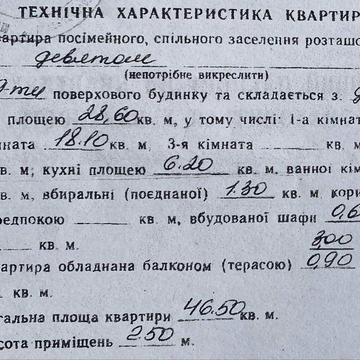 ТЕХНІЧНА ХАРАКТЕРИСТИКА КВАРТИР
вартира посімейного, спільного заселення розташо
девятом
(непотрібне викреслити)
9-ти поверхового будинку та складається з
площею 28,60 кв. м, у тому числі: 1-а кімнат
ната 18.10 кв. м, 3-я кімната ______ кв. м,
в. м; кухні площею 6.20 кв. м, ванної кім
кв. м, вбиральні (поєднаної) 1.30 кв. м, кори
редпокою ______ кв. м, вбудованої шафи 0,6
______ кв. м. 3,00
вартира обладнана балконом (терасою) 0,90
кв. м.
гальна площа квартири 46.50 кв. м.
сота приміщень 2.50 м.